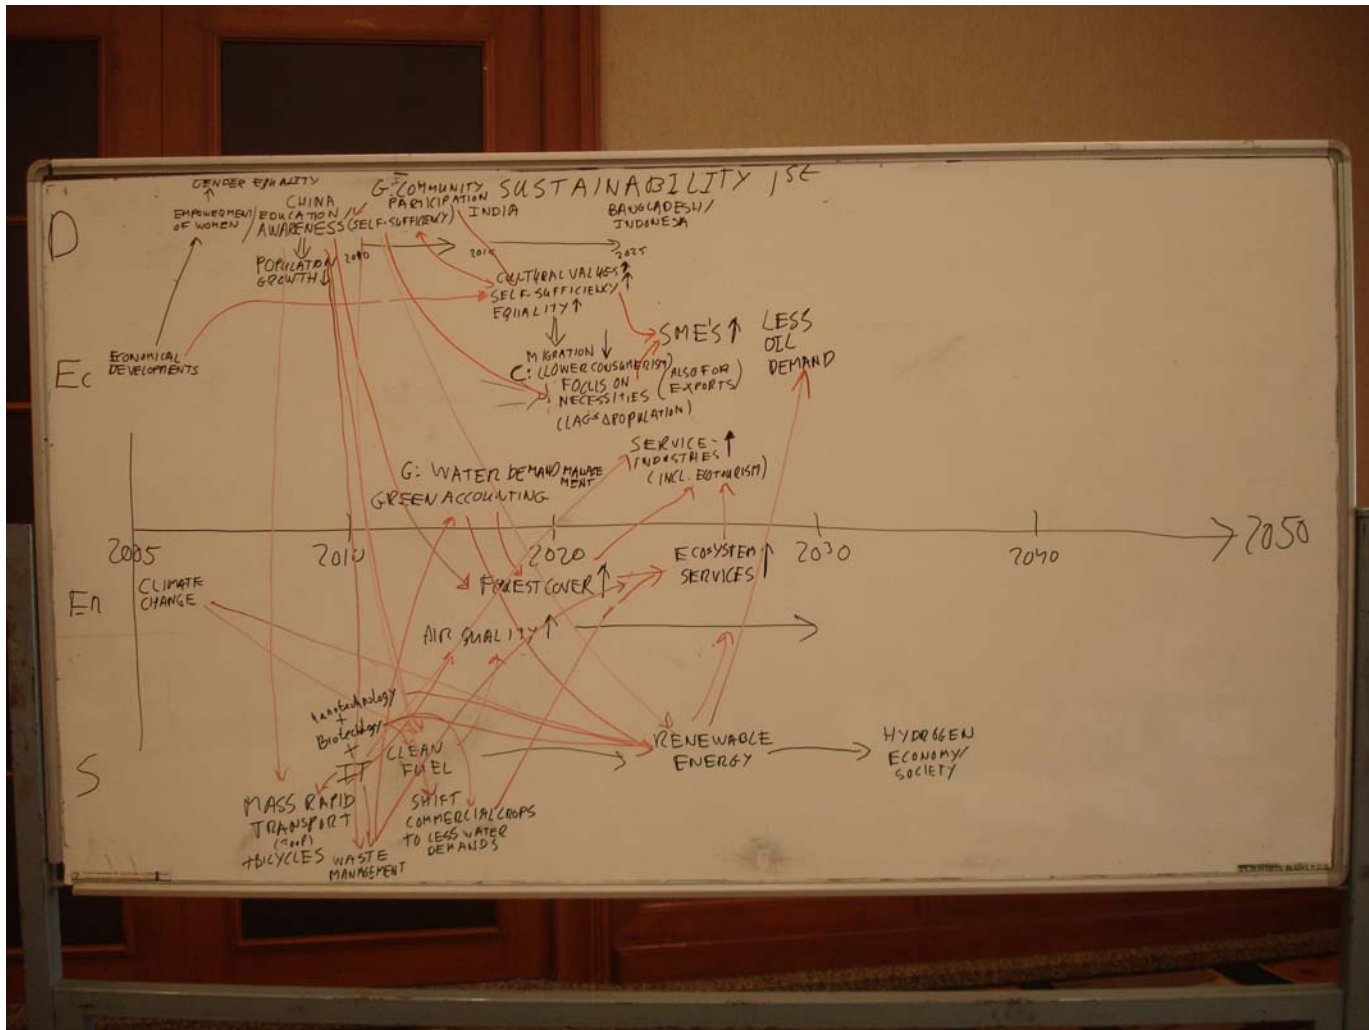 SUSTAINABILITY 1ST
D
GENDER EQUALITY
EMPOWERMENT
OF WOMEN
CHINA
/EDUCATION/
AWARENESS (SELF-SUFFICIENCY)
G: COMMUNITY
PARTICIPATION
INDIA
BANGLADESH/
INDONESIA
2015
2025
POPULATION
GROWTH ↓
CULTURAL VALUES ↑
SELF-SUFFICIENCY ↑
EQUALITY ↑
Ec
ECONOMICAL
DEVELOPMENTS
MIGRATION ↓
C: (LOWER CONSUMERISM)
FOCUS ON
NECESSITIES
(LAGS POPULATION)
SME'S ↑
(ALSO FOR
EXPORTS)
LESS
OIL
DEMAND
SERVICE-
INDUSTRIES ↑
(INCL. ECOTOURISM)
G: WATER DEMAND MANAGE
MENT
GREEN ACCOUNTING
2005
2010
2020
2030
2040
2050
En
CLIMATE
CHANGE
FOREST COVER ↑
ECOSYSTEM
SERVICES ↑
AIR QUALITY ↑
S
Nanotechnology
+
Biotechnology
+
IT
CLEAN
FUEL
RENEWABLE
ENERGY
HYDROGEN
ECONOMY/
SOCIETY
MASS RAPID
TRANSPORT
+BICYCLES
WASTE
MANAGEMENT
SHIFT
COMMERCIAL CROPS
TO LESS WATER
DEMANDS